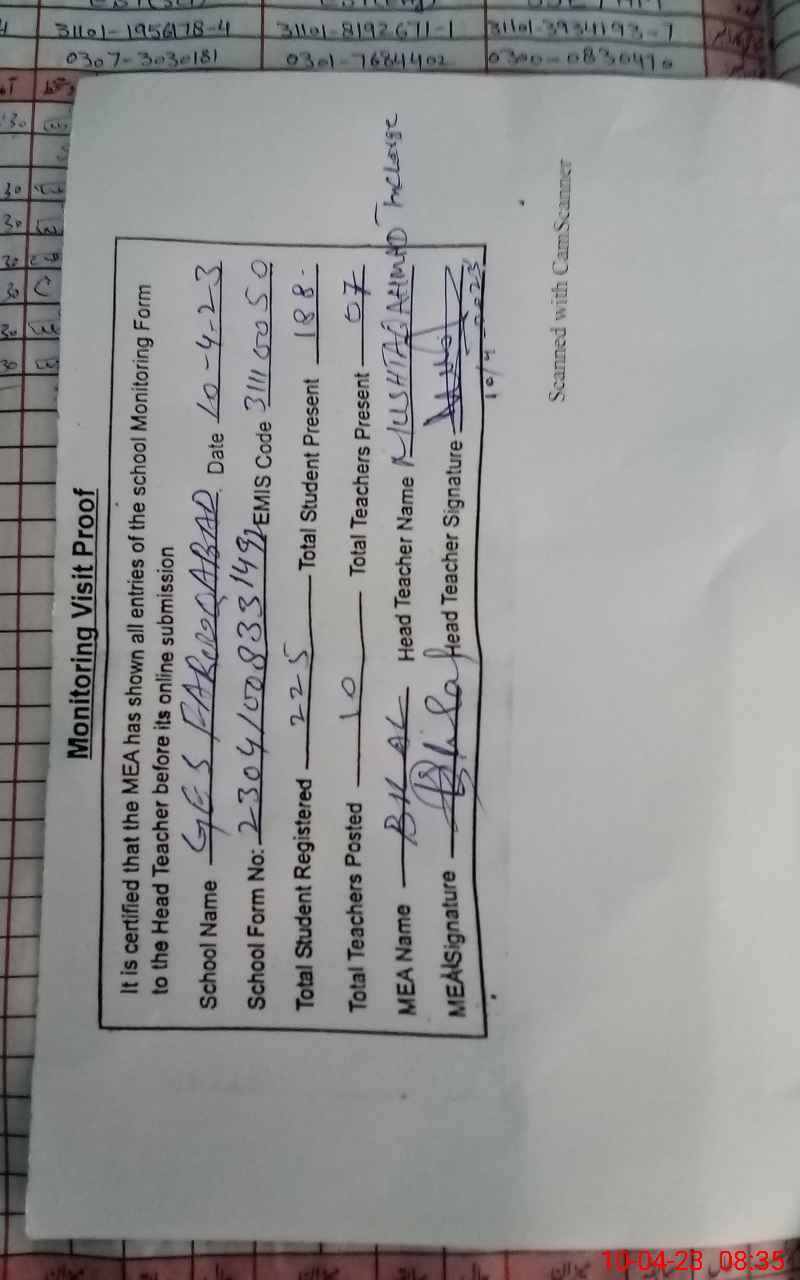 31101-1956178-4 31101-8192671-1 31101-3934193-7
0307-3030181 0301-7684402 0300-0830470
Monitoring Visit Proof
It is certified that the MEA has shown all entries of the school Monitoring Form
to the Head Teacher before its online submission
School Name GES FAROOQABAD Date 10-4-23
School Form No: 23041008331492 EMIS Code 31110050
Total Student Registered 225 Total Student Present 188
Total Teachers Posted 10 Total Teachers Present 07
MEA Name Head Teacher Name MUSHTAQ AHMAD Incharge
MEA Signature Head Teacher Signature
10/4-2023
Scanned with CamScanner
10-04-23 08:35